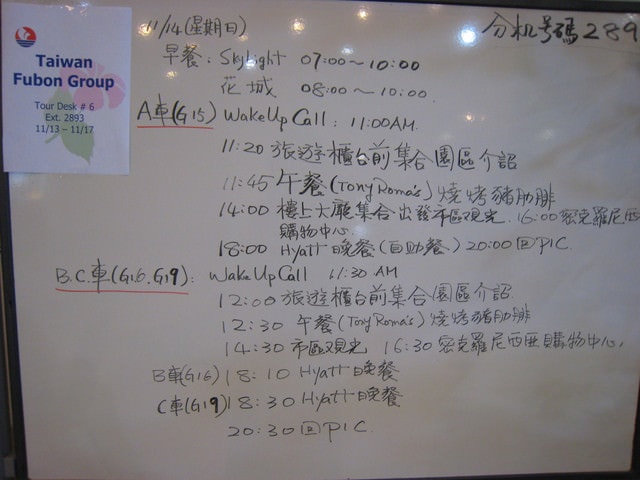 Taiwan
Fubon Group
Tour Desk # 6
Ext. 2893
11/13 – 11/17
11/14(星期日)
分机号碼289
早餐: Skylight 07:00~10:00
花城 08:00~10:00.
A車(G15) WakeUp Call: 11:00AM.
11:20 旅遊櫃台前集合園區介認
11:45 午餐(Tony Roma's)燒烤豬肋腓
14:00 樓上大廳集合出發市區观光. 16:00密克羅尼西
購物中心.
18:00 Hyatt晚餐(自助餐)20:00回PIC.
B.C.車(G16.G19): WakeUp Call 11:30 AM
12:00旅遊櫃台前集合園區介認.
12:30 午餐(Tony Roma's)燒烤豬肋腓
14:30 市區观光 16:30密克羅尼西亚購物中心,
B車(G16) 18:10 Hyatt晚餐
C車(G19) 18:30 Hyatt晚餐
20:30 回PIC.